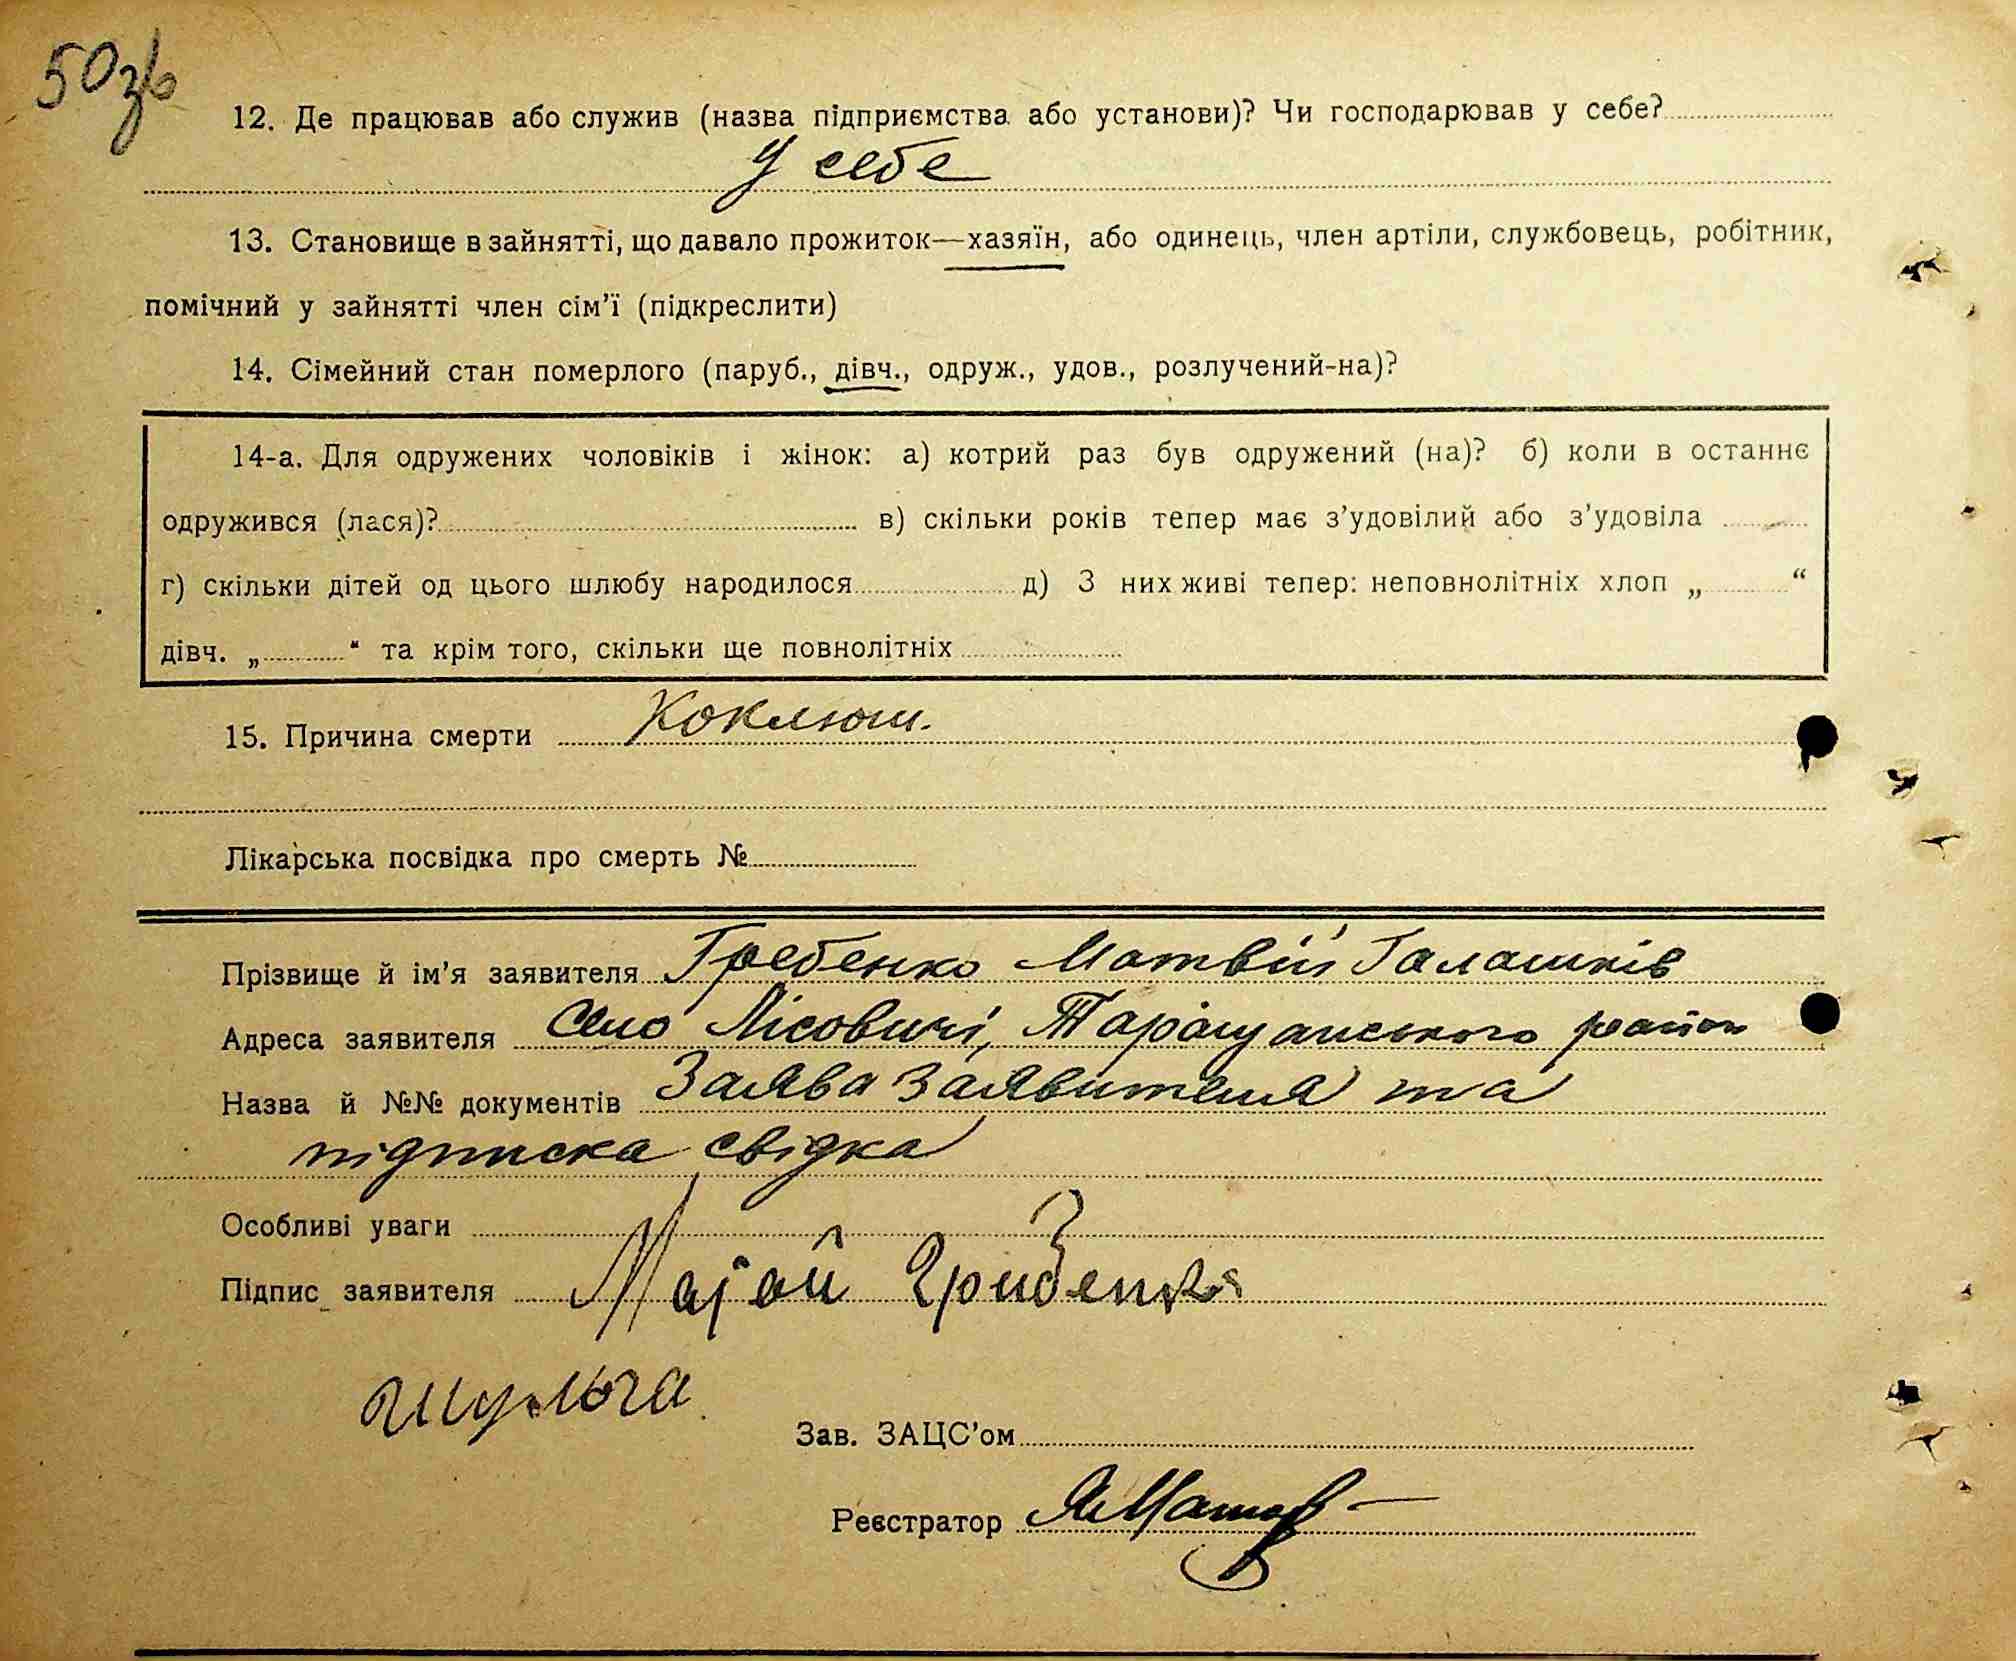 50зв
12. Де працював або служив (назва підприємства або установи)? Чи господарював у себе?
У себе
13. Становище в зайнятті, що давало прожиток—хазяїн, або одинець, член артіли, службовець, робітник,
помічний у зайнятті член сім’ї (підкреслити)
14. Сімейний стан померлого (паруб., дівч., одруж., удов., розлучений-на)?
14-а. Для одружених чоловіків і жінок: а) котрий раз був одружений (на)? б) коли в останнє
одружився (лася)? в) скільки років тепер має з’удовілий або з’удовіла
г) скільки дітей од цього шлюбу народилося д) З них живі тепер: неповнолітніх хлоп „ “
дівч. „ “ та крім того, скільки ще повнолітніх
15. Причина смерти Коклюш.
Лікарська посвідка про смерть №
Прізвище й ім’я заявителя Гребенко Матвій Галашків
Адреса заявителя Село Лісовичі, Таращанського район
Назва й №№ документів Заява заявителя та
підписка свідка
Особливі уваги
Підпис заявителя Грибенко
Зав. ЗАЦС’ом
Реєстратор